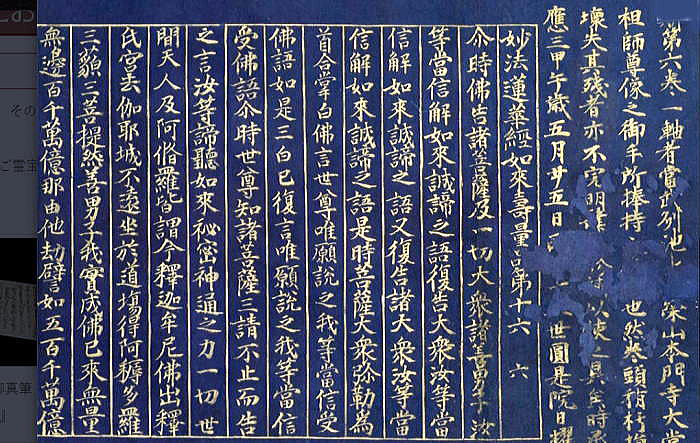 第六卷一軸者當 列池上 深山本門寺大堂
祖師尊像之御手所捧持 也然卷頭稍朽損
壞失其残者亦不完明 以使之具全時
應三甲午歳五月廿五日 世圓是院日耀
妙法蓮華經如來壽量品第十六 六
尒時佛告諸菩薩及一切大衆諸善男子汝
等當信解如來誠諦之語復告大衆汝等當
信解如來誠諦之語又復告諸大衆汝等當
信解如來誠諦之語是時菩薩大衆弥勒為
首合掌白佛言世尊唯願說之我等當信受
佛語如是三白已復言唯願說之我等當信
受佛語尒時世尊知諸菩薩三請不止而告
之言汝等諦聽如來秘密神通之力一切世
間天人及阿脩羅皆謂今釋迦牟尼佛出釋
氏宮去伽耶城不遠坐於道場得阿耨多羅
三藐三菩提然善男子我實成佛已來無量
無邊百千萬億那由他劫譬如五百千萬億
の
その
ご霊宝
御真筆
』